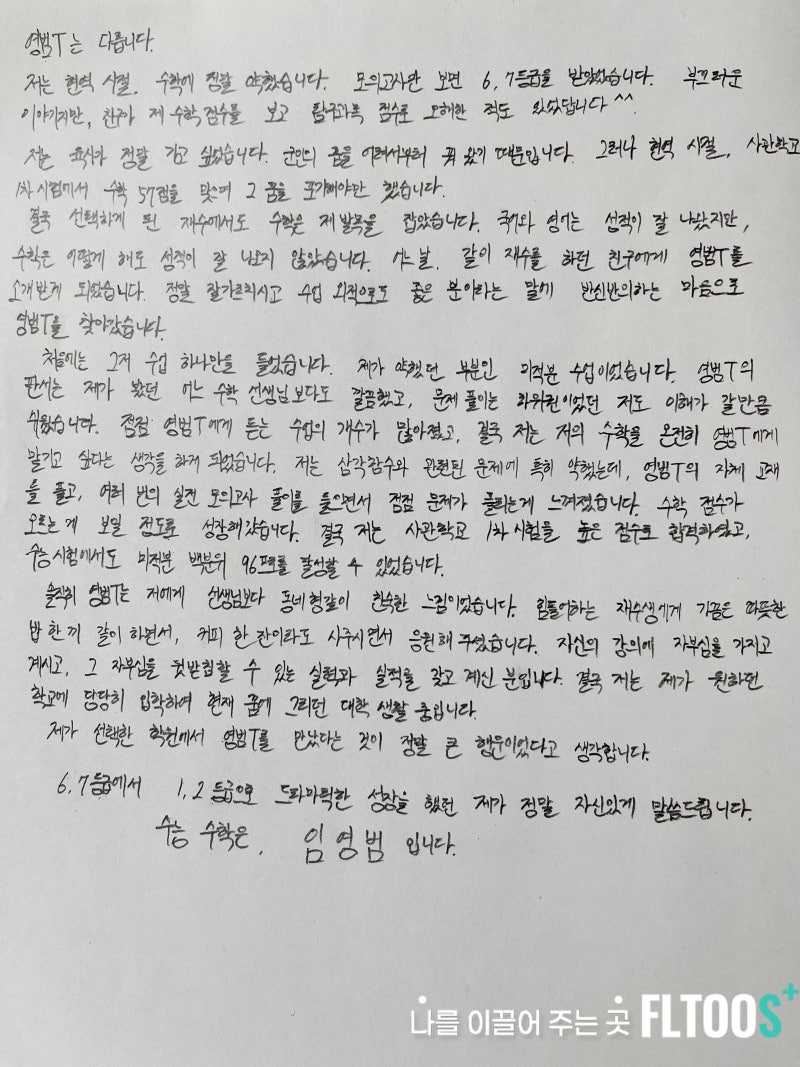 영범T는 다릅니다.
저는 현역 시절, 수학에 정말 약했습니다. 모의고사만 보면 6,7등급을 받았었습니다. 부끄러운
이야기지만, 친구가 제 수학점수를 보고 탐구과목 점수로 오해한 적도 있었답니다^^.
저는 육사가 정말 가고 싶었습니다. 군인의 꿈을 어려서부터 꿔 왔기 때문입니다. 그러나 현역 시절, 사관학교
1차 시험에서 수학 57점을 맞으며 그 꿈을 포기해야만 했습니다.
결국 선택하게 된 재수에서도 수학은 제 발목을 잡았습니다. 국어와 영어는 성적이 잘 나왔지만,
수학은 어떻게 해도 성적이 잘 나오지 않았습니다. 어느 날, 같이 재수를 하던 친구에게 영범T를
소개받게 되었습니다. 정말 잘가르치시고 수업 외적으로도 좋은 분이라는 말에 반신반의하는 마음으로
영범T를 찾아갔습니다.
처음에는 그저 수업 하나만을 들었습니다. 제가 약했던 부분인 미적분 수업이었습니다. 영범T의
판서는 제가 봤던 어느 수학 선생님보다도 깔끔했고, 문제 풀이는 하위권이었던 저도 이해가 갈만큼
쉬웠습니다. 점점 영범T에게 듣는 수업의 개수가 많아졌고, 결국 저는 저의 수학을 온전히 영범T에게
맡기고 싶다는 생각을 하게 되었습니다. 저는 삼각함수와 관련된 문제에 특히 약했는데, 영범T의 자체 교재
를 풀고, 여러 번의 실전 모의고사 풀이를 들으면서 점점 문제가 풀리는게 느껴졌습니다. 수학 점수가
오르는 게 보일 정도로 성장해갔습니다. 결국 저는 사관학교 1차 시험을 높은 점수로 합격하였고,
수능 시험에서도 미적분 백분위 96프로를 달성할 수 있었습니다.
솔직히 영범T는 저에게 선생님보다 동네 형같이 친숙한 느낌이었습니다. 힘들어하는 재수생에게 가끔은 따뜻한
밥 한 끼 같이 하면서, 커피 한 잔이라도 사주시면서 응원해 주셨습니다. 자신의 강의에 자부심을 가지고
계시고, 그 자부심을 뒷받침할 수 있는 실력과 실적을 갖고 계신 분입니다. 결국 저는 제가 원하던
학교에 당당히 입학하여 현재 꿈에 그리던 대학 생활 중입니다.
제가 선택한 학원에서 영범T를 만났다는 것이 정말 큰 행운이었다고 생각합니다.
6,7등급에서 1,2등급으로 드라마틱한 성장을 했던 제가 정말 자신있게 말씀드립니다.
수능 수학은, 임영범 입니다.
나를 이끌어 주는 곳 FLTOOS+